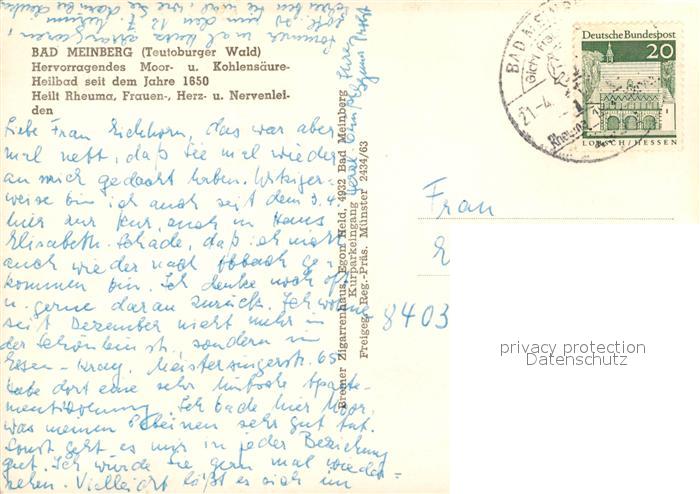 BAD MEINBERG (Teutoburger Wald)
Hervorragendes Moor- u. Kohlensäure-
Heilbad seit dem Jahre 1650
Heilt Rheuma, Frauen-, Herz- u. Nervenlei-
den
Liebe Frau Eichhorn, das war aber
mal nett, daß Sie mal wieder
an mich gedacht haben. Witziger-
weise bin ich auch seit dem 3.4.
hier zur Kur, auch in Haus
Elisabeth. Schade, daß ich nicht
auch wieder nach ge-
kommen bin. Ich denke noch oft
u. gerne daran zurück. Ich wohne
seit Dezember nicht mehr in
der Schönleinstr., sondern in
Essen-Kray, Meistersingerstr. 65
habe dort eine sehr hübsche Aparte-
mentwohnung. Ich bade hier Moor,
was meinen Beinen sehr gut tut.
Sonst geht es mir in jeder Beziehung
gut. Ich würde Sie gern mal wieder-
sehen. Vielleicht läßt es sich im
Sommer mal
Bremer Zigarrenhaus, Egon Held, 4932 Bad Meinberg
Kurparkeingang
Freigeg. Reg.-Präs. Münster 2434/63
BAD MEINBERG
Gicht
21.-4.
Rheuma
Deutsche Bundespost
20
LORSCH/HESSEN
Frau
E
8403
privacy protection
Datenschutz